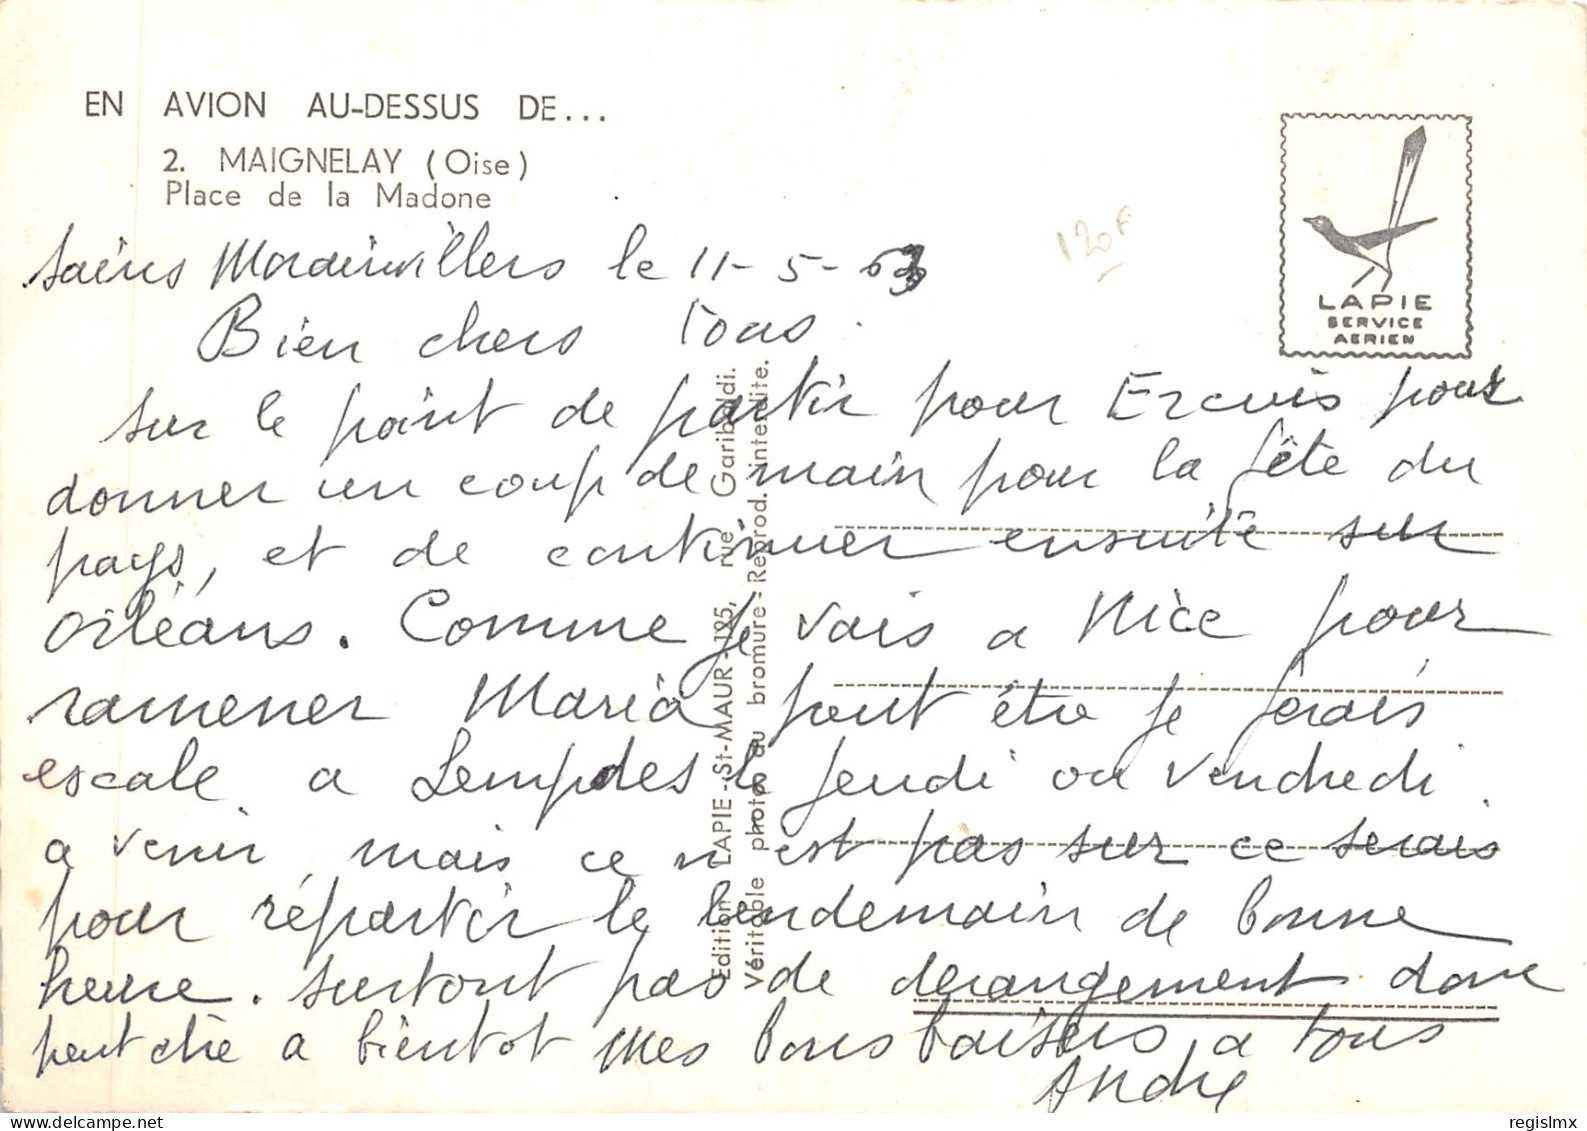 EN AVION AU-DESSUS DE...
2. MAIGNELAY (Oise)
Place de la Madone
LAPIE
SERVICE
AERIEN
120F
Sains Morainvillers le 11-5-63
Bien chers Tous.
sur le point de partir pour Ercuis pour
donner un coup de main pour la fête du
pays, et de continuer ensuite sur
Orléans. Comme je vais a Nice pour
ramener Maria peut être je ferais
escale a Lempdes le jeudi ou vendredi
a venir, mais ce n'est pas sur ce serais
pour répartir le lendemain de bonne
heure. surtout pas de derangement donc
peut être a bientot mes bons baisers a tous
André
Edition LAPIE - St-MAUR - 125, rue Garibaldi.
Véritable photo au bromure - Reprod. interdite.
regislmx